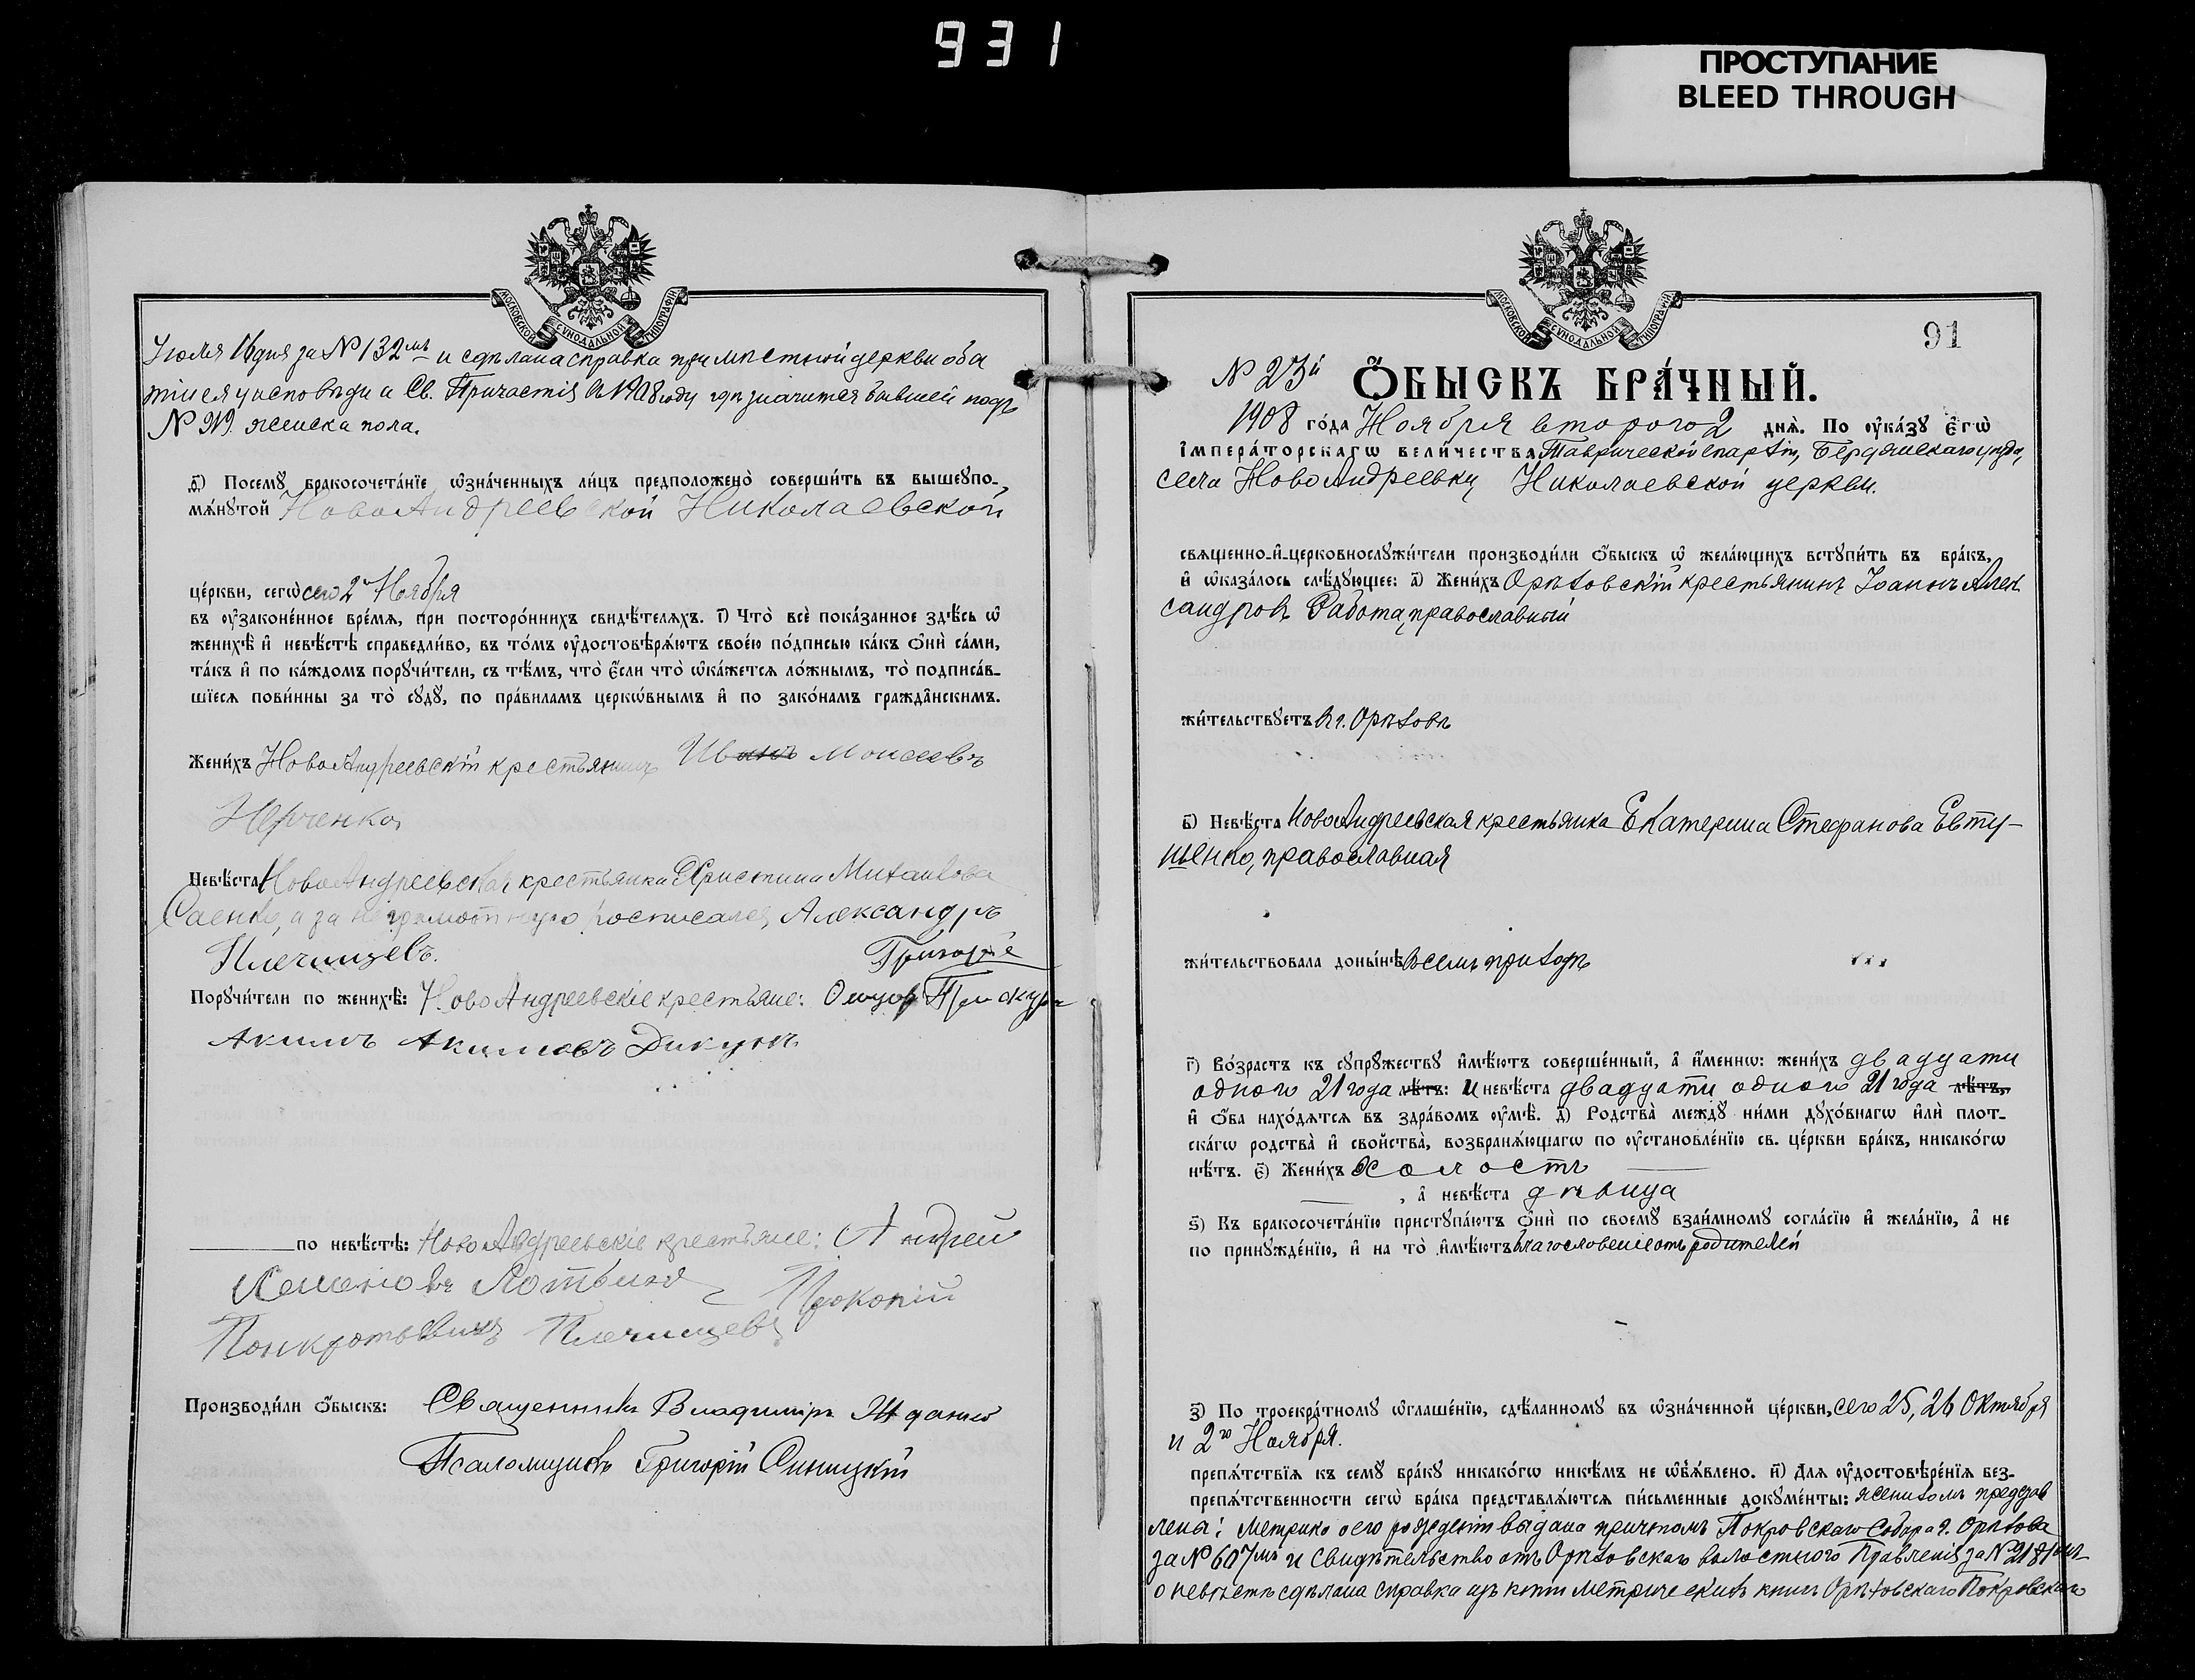 931
ПРОСТУПАНИЕ
BLEED THROUGH
МОСКОВСКОЙ СѴНОДАЛЬНОЙ ТИПОГРАФІИ
Іюля 16 дня за № 132мъ и сдѣлана справка при мѣстной церкви о бы
тіи ея у исповѣди и Св. Причастія въ 1908 году гдѣ значится бывшей подъ
№ 919. женска пола.
д҃) Посемꙋ̀ бракосочета́нїе ѡ҆зна́ченныхъ ли́цъ предположено̀ соверши́ть въ вышеꙋпо-
мѧ́нꙋтой НовоАндреевской Николаевской
це́ркви, сегѡ̀ сего 2го Ноября
въ ᲂу҆зако́ненное вре́мѧ, при посторо́ннихъ свидѣ́телѧхъ. і҃) Что̀ всѐ пока́занное здѣ́сь ѡ҆
женихѣ̀ и҆ невѣ́стѣ справедли́во, въ то́мъ ᲂу҆достовѣрѧ́ютъ свое́ю по́дписью ка́къ ѻ҆нѝ са́ми,
та́къ и҆ по ка́ждомъ порꙋчи́тели, съ тѣ́мъ, что̀ є҆́сли что̀ ѡ҆ка́жетсѧ ло́жнымъ, то̀ подписа́в-
шїесѧ пови́нны за то̀ сꙋдꙋ̀, по пра́виламъ церко́внымъ и҆ по зако́намъ гражда́нскимъ.
Жени́хъ НовоАндреевскій крестьянинъ Иванъ Моисеевъ
Невѣ́ста НовоАндреевская крестьянка Христина Михаилова
Саенко, а за неграмотную росписался, Александръ
Плечищевъ.
Порꙋчи́тели по женихѣ̀: НовоАндреевскіе крестьяне:
Акимъ Акимовъ Дикунъ
по невѣ́стѣ: НовоАндреевскіе крестьяне: Андрей
Прокопій
Плечищевъ
Производи́ли ѻ҆́быскъ: Священникъ Владиміръ Ждановъ
Псаломщикъ Григорій Синицкій
МОСКОВСКОЙ СѴНОДАЛЬНОЙ ТИПОГРАФІИ
91
№ 23й Ѻ҆́БЫСКЪ БРА́ЧНЫЙ.
1908 го́да Ноября второго 2 днѧ̀. По ᲂу҆ка́зꙋ Є҆гѡ̀
І҆мпера́торскагѡ вели́чества Таврической епархіи, Бердянскаго уѣзда,
села НовоАндреевки Николаевской церкви.
свѧщенно-и҆-церковнослꙋжи́тели производи́ли ѻ҆́быскъ ѡ҆ жела́ющихъ встꙋпи́ть въ бра́къ,
и҆ ѡ҆каза́лось слѣ́дꙋющее: а҃) Жени́хъ Орѣховскій крестьянинъ Іоаннъ Алек
сандровъ Работа, православный
жи́тельствꙋетъ въ г. Орѣховѣ
в҃) Невѣ́ста НовоАндреевская крестьянка Екатерина Стефанова Евту-
шенко, православная
жи́тельствовала доны́нѣ въ семъ приходѣ
г҃) Во́зрастъ къ сꙋпрꙋ́жествꙋ и҆мѣ́ютъ соверше́нный, а҆ и҆́меннѡ: жени́хъ двадцати
одного 21 года лѣ́тъ: и невѣ́ста двадцати одного 21 года лѣ́тъ,
и҆ ѻ҆́ба нахо́дѧтсѧ въ здра́вомъ ᲂу҆мѣ̀. д҃) Родства̀ междꙋ̀ ни́ми дꙋхо́внагѡ и҆лѝ плот-
ска́гѡ родства̀ и҆ сво́йства̀, возбранѧ́ющагѡ по ᲂу҆становле́нїю св. це́ркви бра́къ, никако́гѡ
нѣ́тъ. є҃) Жени́хъ холостъ
, а҆ невѣ́ста дѣвица
ѕ҃) Къ бракосочета́нїю пристꙋпа́ютъ ѻ҆нѝ по своемꙋ̀ взаи́мномꙋ согла́сїю и҆ жела́нїю, а҆ не
по принꙋжде́нїю, и҆ на то̀ и҆мѣ́ютъ благословеніе отъ родителей
з҃) По троекра́тномꙋ ѡ҆глаше́нїю, сдѣ́ланномꙋ въ ѡ҆зна́ченной це́ркви, сего 25, 26 Октября
и 2го Ноября.
препѧ́тствїѧ къ семꙋ̀ бра́кꙋ никако́гѡ никѣ́мъ не ѡ҆б̾ѧ́влено. и҃) Длѧ ᲂу҆достовѣре́нїѧ без-
препѧ́тственности сегѡ̀ бра́ка представлѧ́ютсѧ пи́сьменные докꙋме́нты: женихомъ предстaв
лены: Метрика о его рожденіи выдана причтомъ Покровскаго Собора г. Орѣхова
за № 607мъ и свидѣтельство отъ Орѣховскаго волостного Правленія за № 2181мъ
о невѣстѣ сдѣлана справка изъ копіи метрическихъ книгъ Орѣховскаго Покровскаго